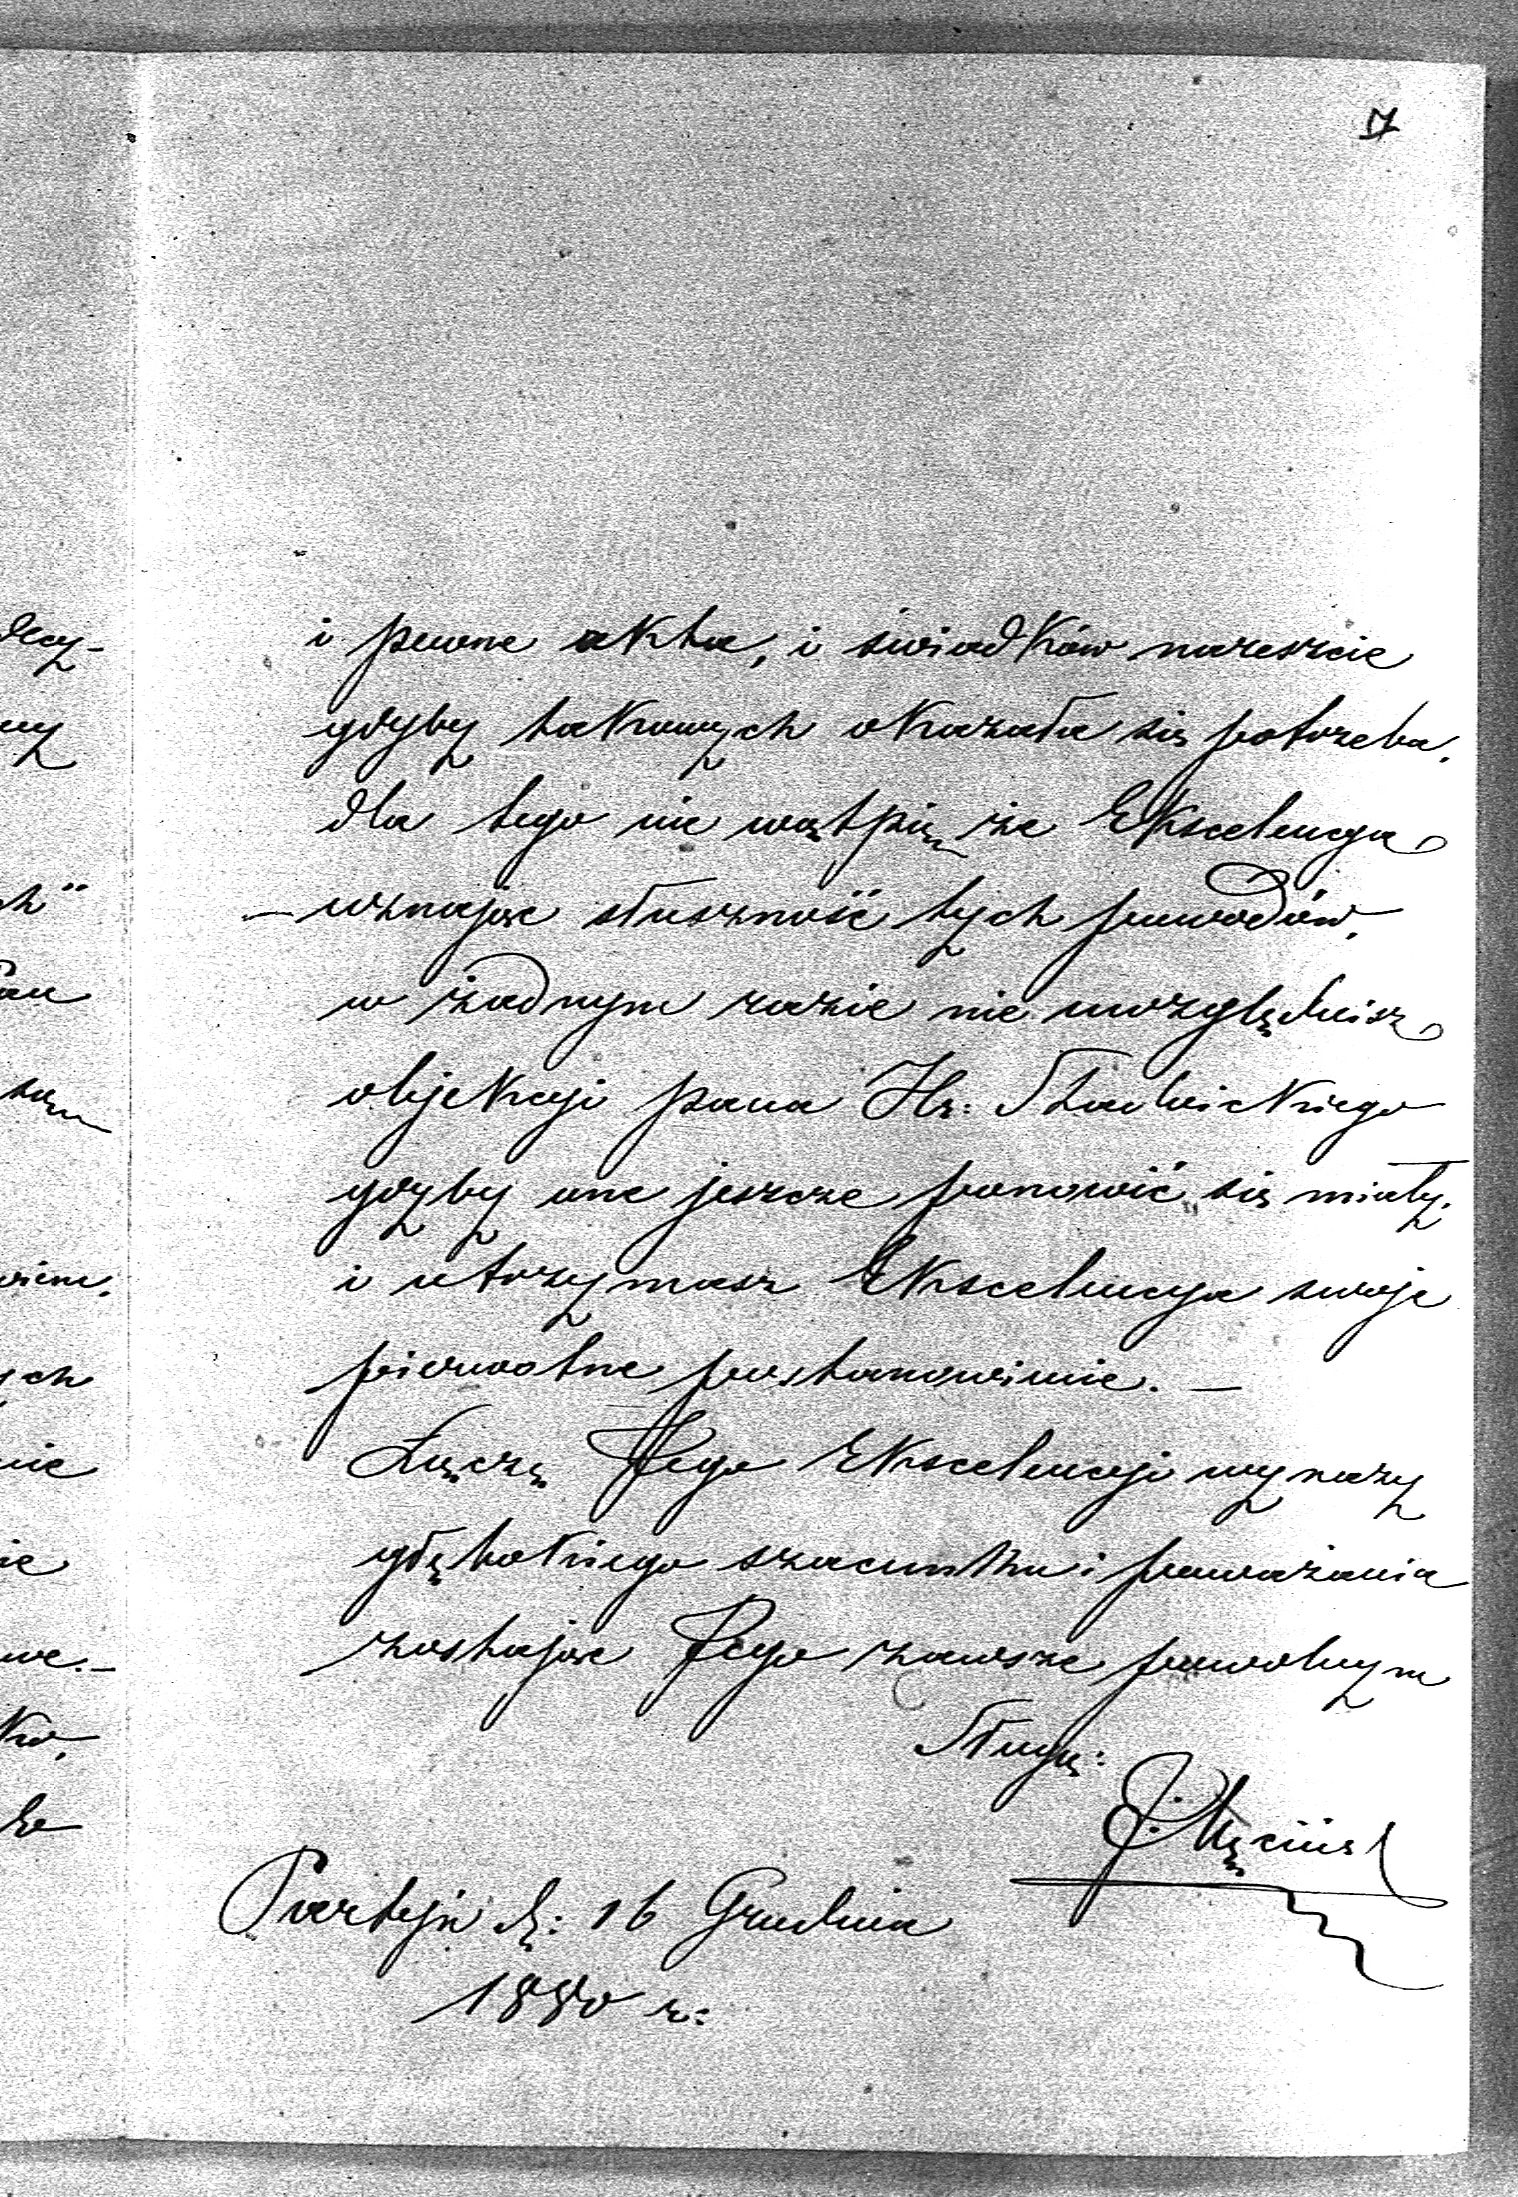 7
i pewne akta, i świadków nareszcie
gdyby takowych okazała się potrzeba,
dla tego nie wątpię że Ekscelencya
uznając słuszność tych powodów,
w żadnym razie nie uwzględnisz
objekcyi pana Hr: Stadnickiego
gdyby one jeszcze ponowić się miały,
i utrzymasz Ekscelencya swoje
pierwotne postanowienie. —
Łączę Jego Ekscelencyi wyrazy
głębokiego szacunku i poważania
zostając Jego zawsze powolnym
Sługą:
d: 16 Grudnia
1880 r: